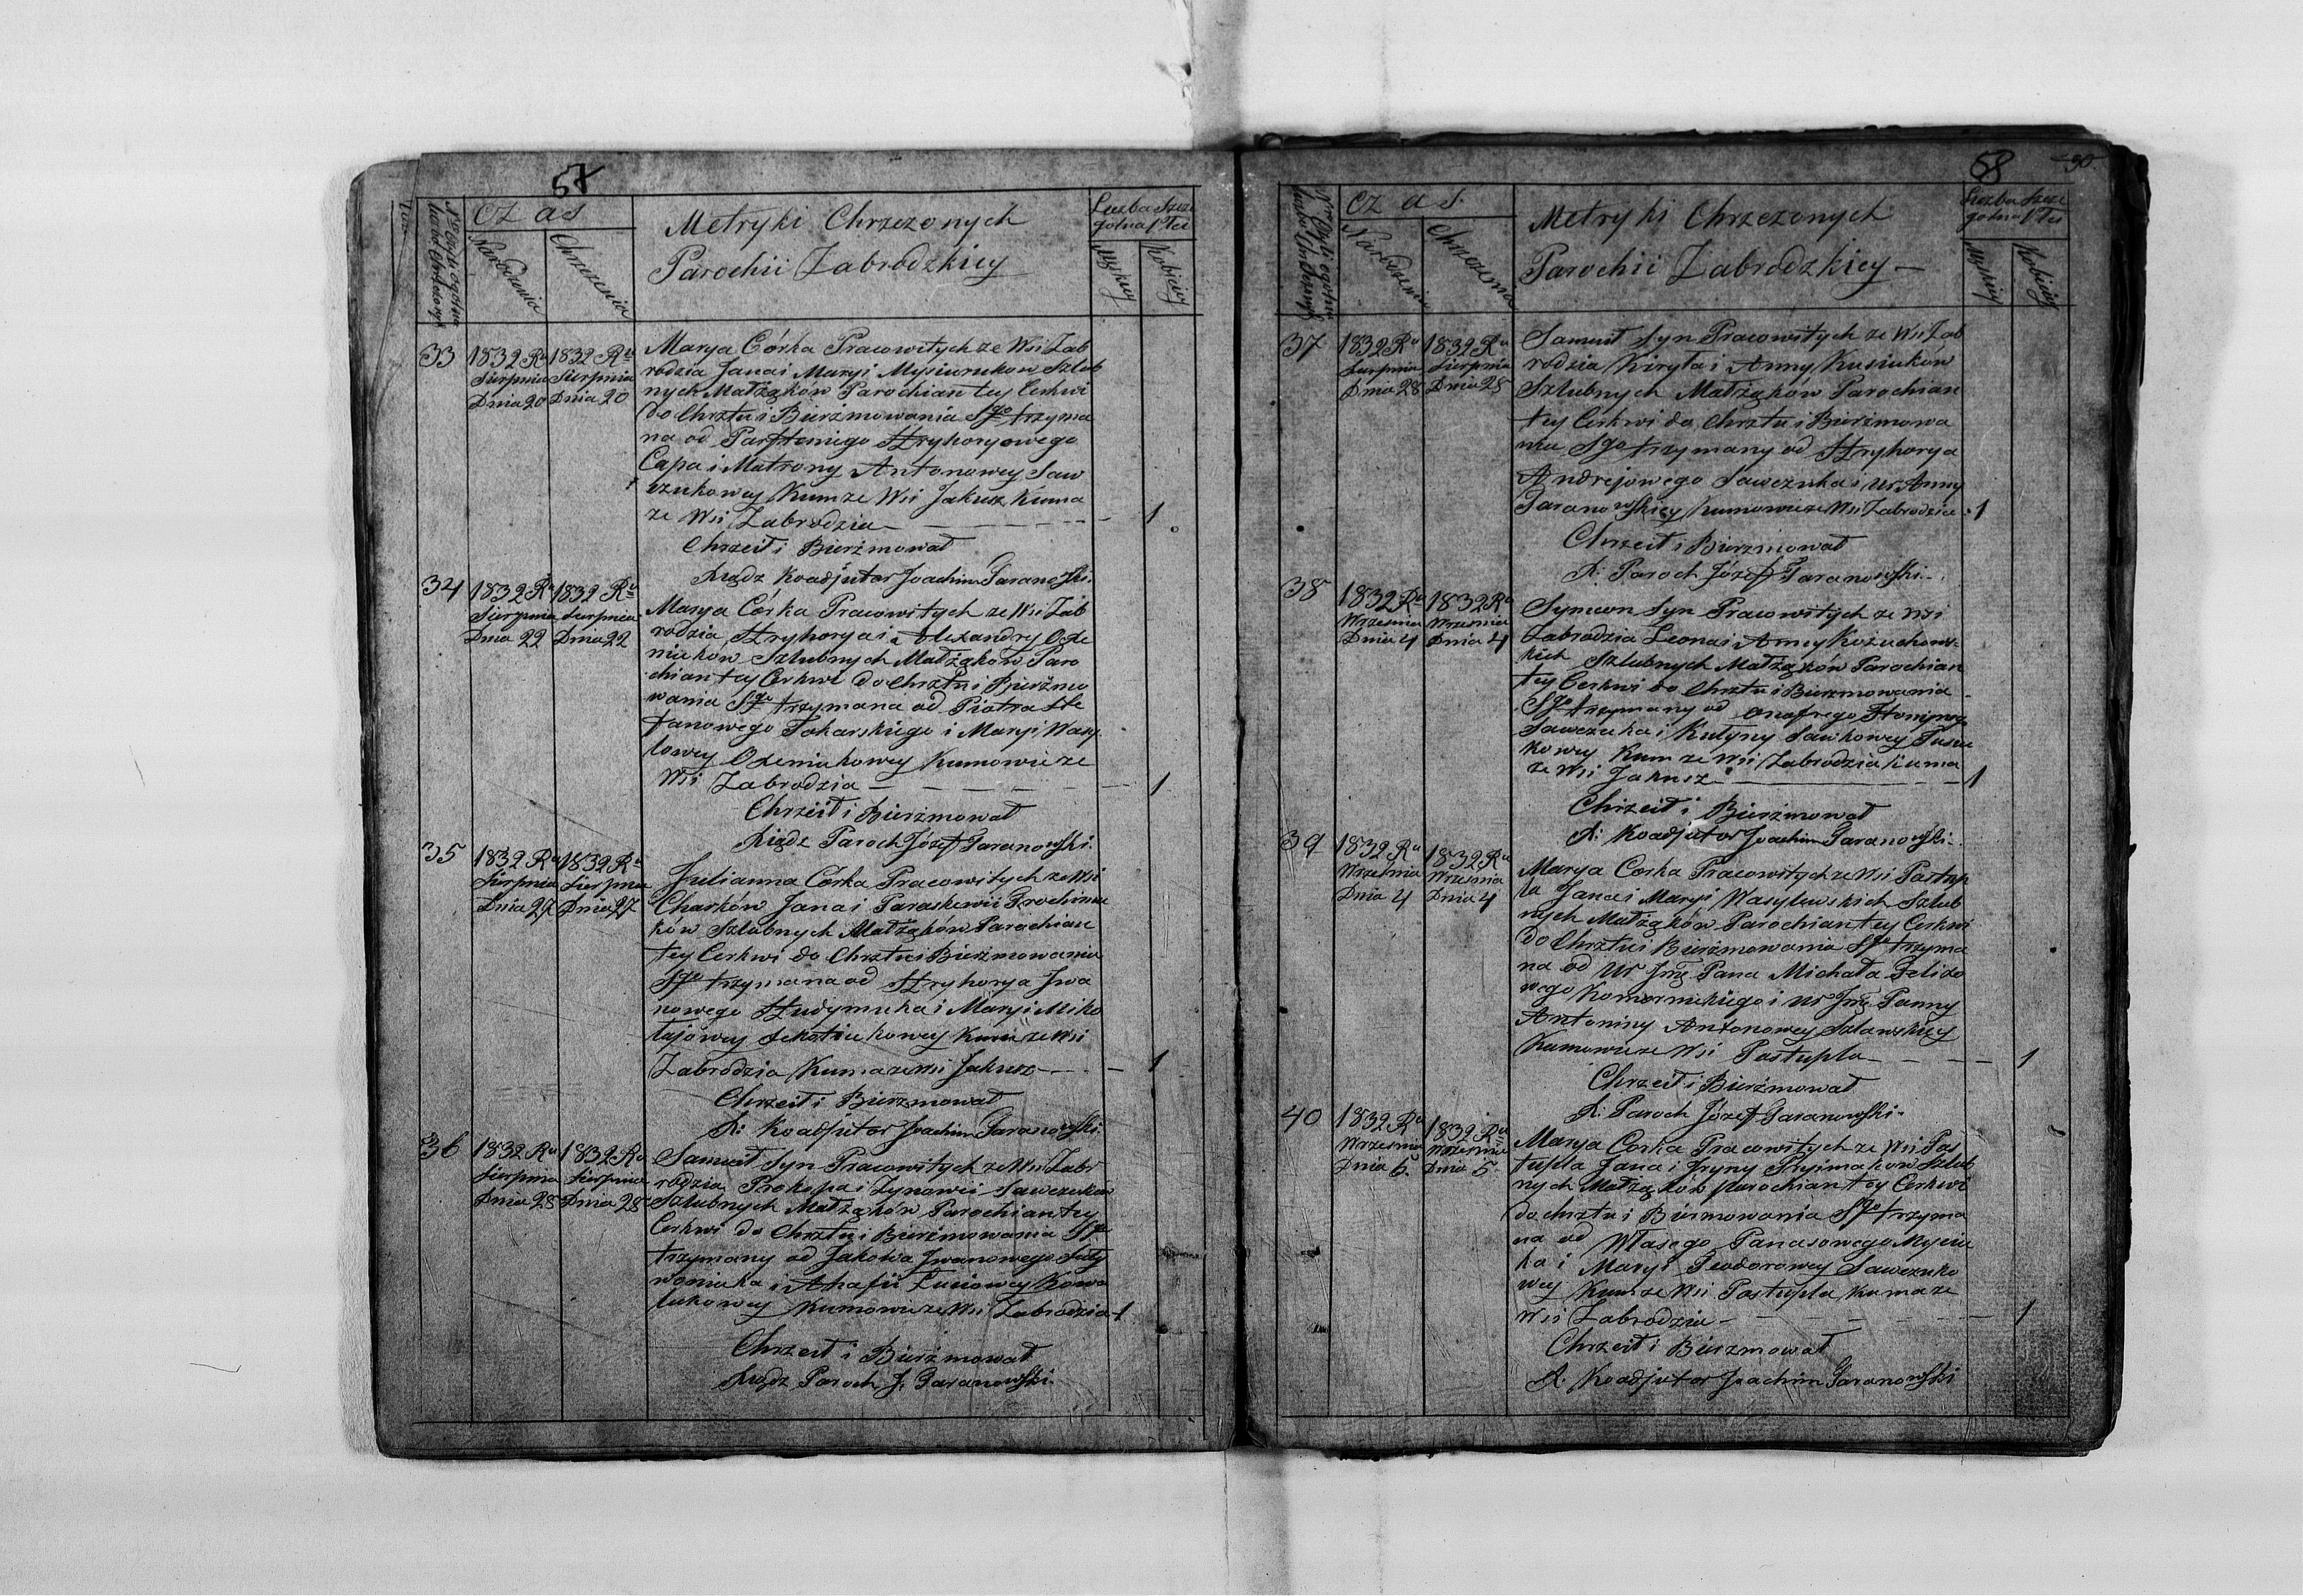 57
N
Czas
Narodzenia
Chrzczenia
Metryki Chrzczonych
Parochii Zabrodzkiey
Liczba Szcze
golna Płci
Męzkiey
Kobiecey
33
1832 Ru
Sierpnia
Dnia 20
1832 Ru
Sierpnia
Dnia 20
Marya Córka Pracowitych ze Wsi Zab
rodzia Jana i Maryi Szlub
nych Małżąków Parochian tey Cerkwi
do Chrztu i Bierżmowania Sgo trzyma
na od Hryhoryowego
Capa i Matrony Antonowey Saw
czukowey Kum ze Wsi Jakusz Kuma
ze Wsi Zabrodzia 1
Chrzcił i Bierżmował
Xiądz Koadjutor Joachim Taranowski.
34
1832 Ru
Sierpnia
Dnia 22
1832 Ru
Sierpnia
Dnia 22
Marya Córka Pracowitych ze Wsi Zab
rodzia Hryhorya i Alexandry Oze
niuków Szlubnych Małżąków Paro
chian tey Cerkwi do Chrztu i Bierżmo
wania Sgo trzymana od Piotra Ste
fanowego Tokarskiego i Maryi Wasy
lowey Ozeniukowey Kumowie ze
Wsi Zabrodzia 1
Chrzcił i Bierżmował
Xiądz Paroch Józef Taranowski.
35
1832 Ru
Sierpnia
Dnia 27
1832 Ru
Sierpnia
Dnia 27
Julianna Corka Pracowitych ze Wsi
Charków Jana i Paraskewii
ków Szlubnych Małżąków Parochian
tey Cerkwi do Chrztu i Bierżmowania
Sgo trzymana od Hryhorya Jwa
nowego i Maryi Miko
łajowey Kum ze Wsi
Zabrodzia Kuma ze Wsi Jakusz 1
Chrzcił i Bierżmował
X: Koadjutor Joachim Taranowski
36
1832 Ru
Sierpnia
Dnia 28
1832 Ru
Sierpnia
Dnia 28
Samuel Syn Pracowitych ze Wsi Zab
rodzia Prokopa i Zynowii Sawczuków
Szlubnych Małżąków Parochian tey
Cerkwi do Chrztu i Bierżmowania Sgo
trzymany od Jakowa Jwanowego
i Ahafii Kowa
lukowey Kumowie ze Wsi Zabrodzia 1
Chrzcił i Bierżmował
Xiądz Paroch J. Taranowski.
58
30
Czas.
Narodzenia
Chrzczenia
Metryki Chrzczonych
Parochii Zabrodzkiey
Liczba Szcze
golna Płci
Męzkiey
Kobiecey
37
1832 Ru
Sierpnia
Dnia 28
1832 Ru
Sierpnia
Dnia 28
Samuel Syn Pracowitych ze Wsi Zab
rodzia Kiryła i Anny Kusiuków
Szlubnych Małżąków Parochian
tey Cerkwi do Chrztu i Bierżmowa
nia Sgo trzymany od Hryhorya
Andrejowego Sawczuka i Ur Anny
Taranowskiey Kumowie ze Wsi Zabrodzia 1
Chrzcił i Bierzmował
X: Paroch Józef Taranowski.
38
1832 Ru
Wrzesnia
Dnia 4
1832 Ru
Wrzesnia
Dnia 4
Symeon Syn Pracowitych ze Wsi
Zabrodzia Leona i Anny Kożuchow
kich Szlubnych Małżąków Parochian
tey Cerkwi do Chrztu i Bierżmowania
Sgo trzymany od Onafrego
Sawczuka i Kulyny Sawkowey
kowey Kum ze Wsi Zabrodzia Kuma
ze Wsi Jakusz 1
Chrzcił i Bierżmował
X: Koadjutor Joachim Taranowski.
39
1832 Ru
Wrzesnia
Dnia 4
1832 Ru
Wrzesnia
Dnia 4
Marya Corka Pracowitych ze Wsi Pastup
la Jana i Maryi Wasylewskich Szlub
nych Małżąków Parochian tey Cerkwi
do Chrztu i Bierżmowania Sgo trzyma
na od Ur Jmę Pana Michała Felixo
wego Komornickiego i Ur Jmę Panny
Antoniny Antonowey Szlawskiey
Kumowie ze Wsi Pastupla 1
Chrzcił i Bierżmował
X: Paroch Józef Taranowski.
40
1832 Ru
Wrzesnia
Dnia 5.
1832 Ru
Wrzesnia
Dnia 5
Marya Corka Pracowitych ze Wsi Pas
tupla Jana i Jryny Pryimaków Szlub
nych Małżąków Parochian tey Cerkwi
do chrztu i Biermowania Sgo trzyma
na od Własego Panasowego
ka i Maryi Teodorowey Sawczuko
wey Kum ze Wsi Pastupla Kuma ze
Wsi Zabrodzia 1
Chrzcił i Bierzmował
X. Koadjutor Joachim Taranowski